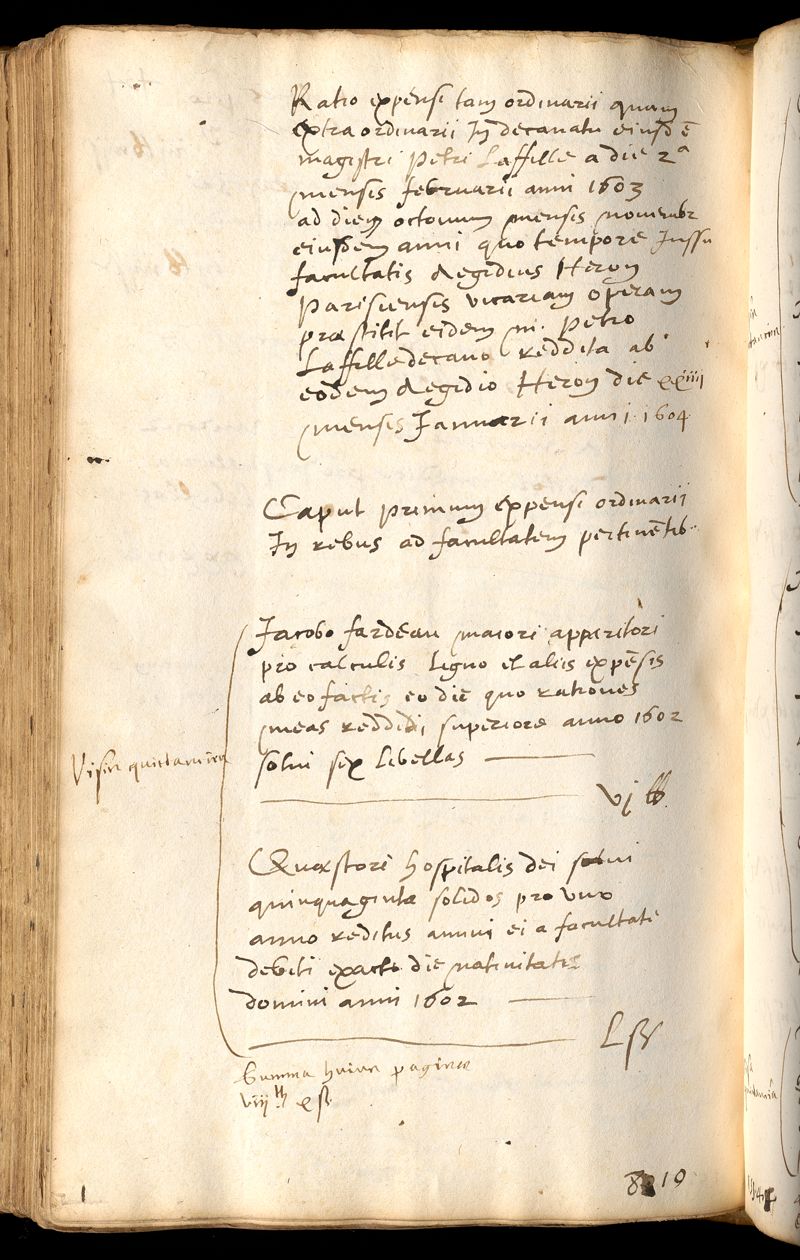 Ratio expensi tam ordinarii quam
extraordinarii In decanatu eiusdē
magistri Petri Laffille a die 2a
mensis februarii anni 1603
ad diem octauum mensis nouembr
eiusdem anni quo tempore Iussu
facultatis Aegidius Heron
Parisiensis vicariam operam
præstitit eidem m. Petro
Laffille decano reddita ab
eodem Aegidio Heron die xxiiii
mensis Januarii anni 1604
Caput primum expensi ordinarii
In rebus ad facultatem pertinētib.
Jacobo fardeau maiori apparitori
pro calculis ligno et aliis expēsis
ab eo factis eo die quo rationes
meas reddidi superiore anno 1602
solui sex libellas
vj lb
Visæ quictantiæ
Quæstori hospitalis dei solui
quinquaginta solidos pro vno
anno reditus annui ei a facultate
debiti exacto die natiuitatis
domini anni 1602
L ß
Summa huius paginæ
viij lb x ß.
1
819